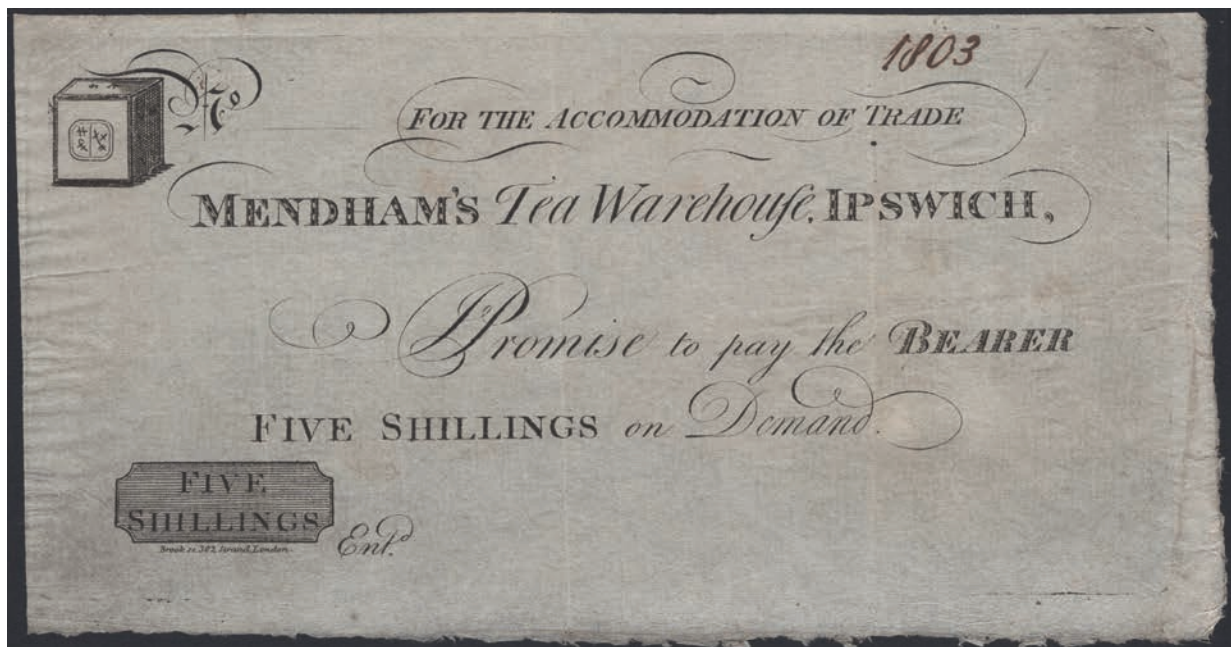 1803
No
FOR THE ACCOMMODATION OF TRADE
MENDHAM'S Tea Warehouſe, IPSWICH,
I Promise to pay the BEARER
FIVE SHILLINGS on Demand.
FIVE
SHILLINGS
Brook sc. 302, Strand, London.
Entd.